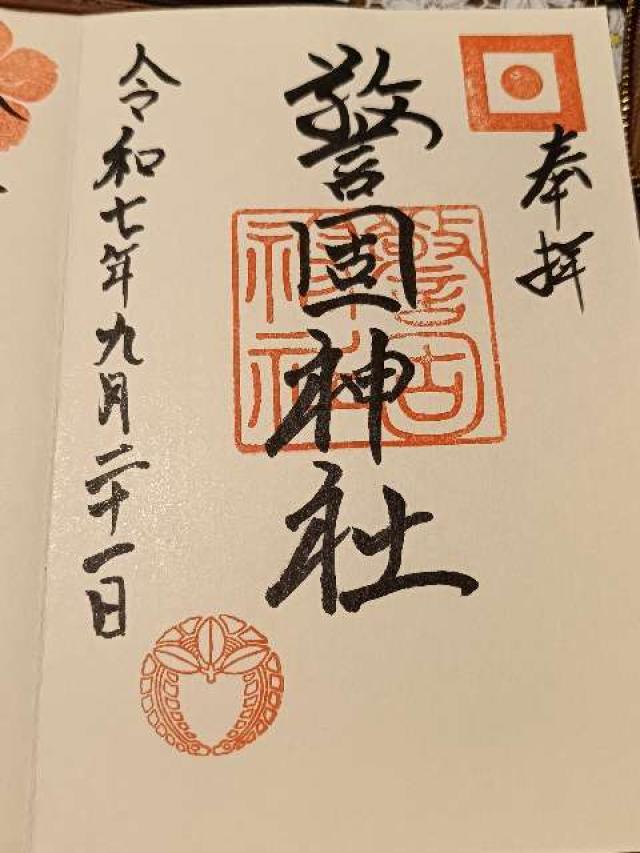 奉拝
警固神社
警固神社
令和七年九月二十一日